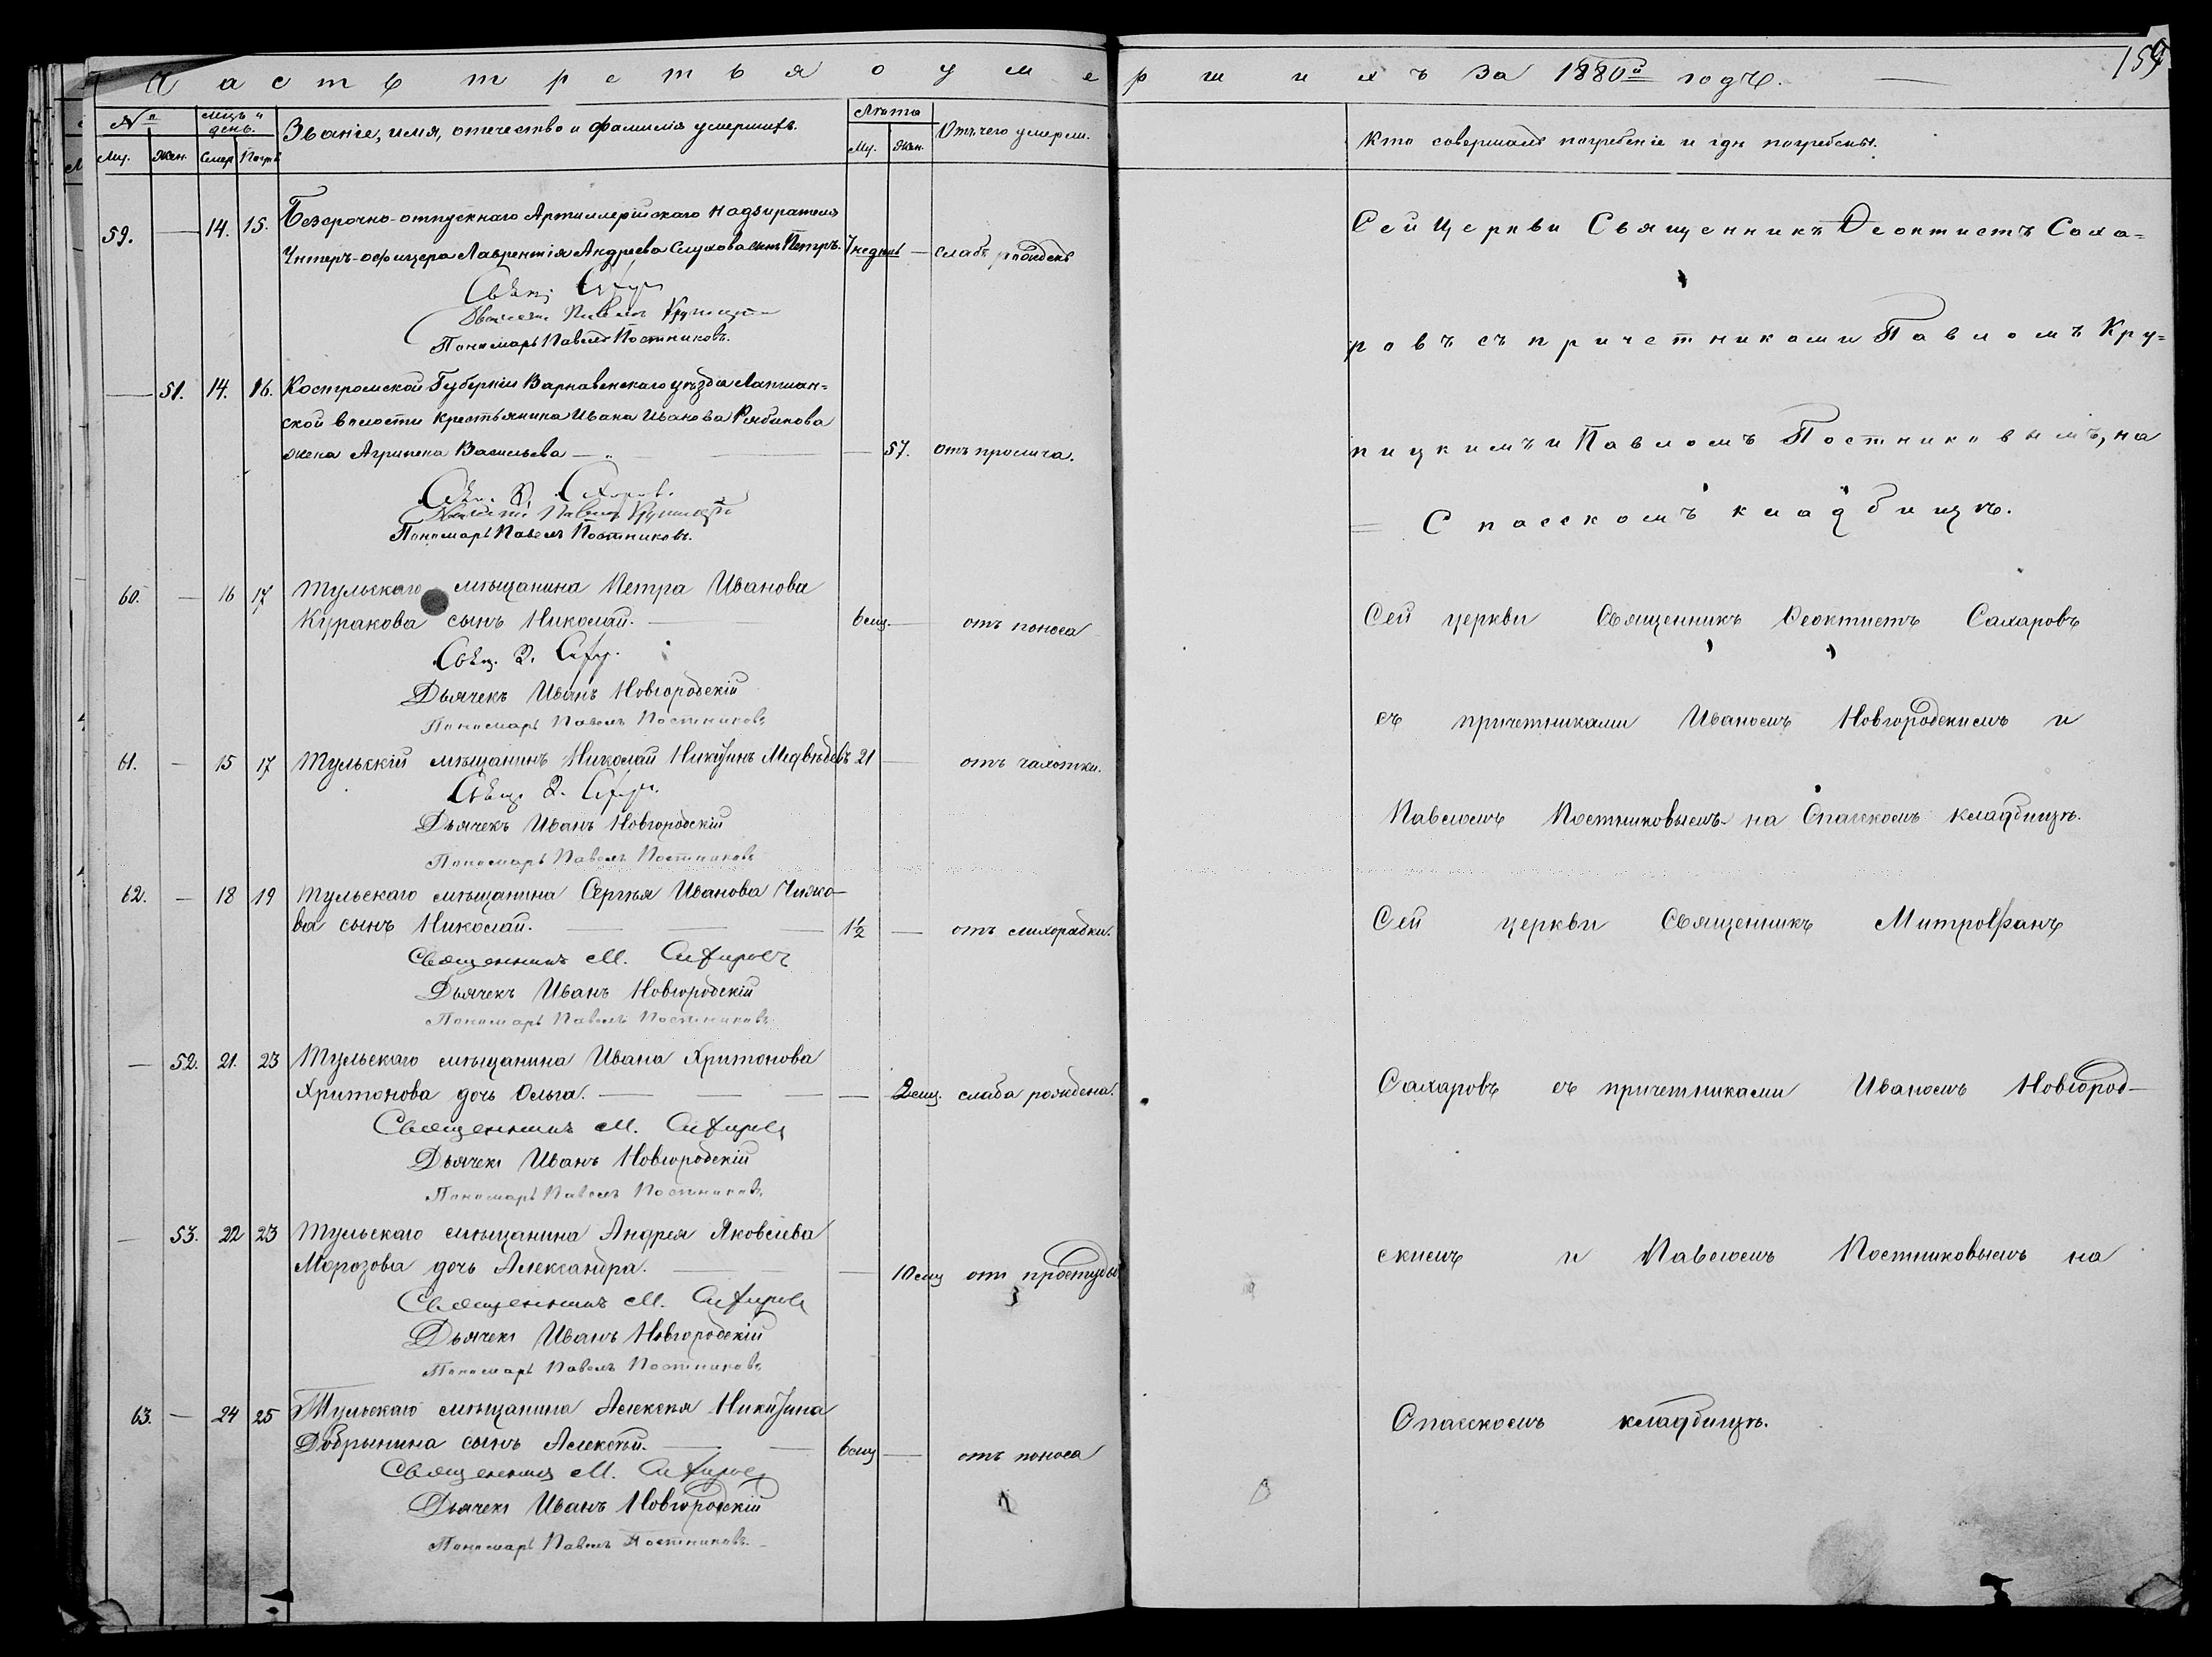 Часть третья о умершихъ за 1880й годъ.
159
№
мцъ и день.
Званіе, имя, отечество и фамилія умершихъ.
Лѣта
Отъ чего умерли.
Кто совершалъ погребеніе и гдѣ погребены.
Му. Жен. Смер Погр
Му. Жен.
59. — 14. 15. Безсрочно-отпускнаго Артиллерійскаго Надзирателя
Унтеръ-офицера Лаврентія Андреева Слухова сынъ Петръ. 7 недѣль — слабъ рожденъ
Дьячекъ Павелъ Крутицкій
Пономарь Павелъ Постниковъ.
— 51. 14. 16. Костромской Губерніи Варнавенскаго уѣзда Лапшан=
ской волости Крестьянина Ивана Иванова Рябинова
жена Агрипена Васильева — — 57. отъ паралича.
Свящ. Ѳ. Сахаровъ
Пономарь Павелъ Постниковъ.
Сей Церкви Священникъ Ѳеоктистъ Саха=
ровъ съ причетниками Павломъ Кру=
пицкимъ и Павломъ Постниковымъ, на
= Спасскомъ кладбищѣ.
60. — 16 17 Тульскаго мѣщанина Петра Иванова
Куракова сынъ Николай. — 6 мц. — отъ поноса
Свящ. Ѳ. Сахаровъ
Дьячекъ Иванъ Новгородскій
Пономарь Павелъ Постниковъ
61. — 15 17 Тульскій мѣщанинъ Николай Никитинъ Медвѣдевъ 21 — отъ чахотки.
Свящ. Ѳ. Сахаровъ
Дьячекъ Иванъ Новгородскій
Пономарь Павелъ Постниковъ
Сей церкви Священникъ Ѳеоктистъ Сахаровъ
съ причетниками Иваномъ Новгородскимъ и
Павломъ Постниковымъ на Спасскомъ кладбищѣ.
62. — 18 19 Тульскаго мѣщанина Сергѣя Иванова Чижо-
ва сынъ Николай. — — — 1½ — отъ лихорадки.
Священникъ М. Сахаровъ
Дьячекъ Иванъ Новгородскій
Пономарь Павелъ Постниковъ
— 52. 21. 23 Тульскаго мѣщанина Ивана Хритонова
Хритонова дочь Ольга. — — — — 2 мц. слаба рождена.
Священникъ М. Сахаровъ
Дьячекъ Иванъ Новгородскій
Пономарь Павелъ Постниковъ
— 53. 22 23 Тульскаго мѣщанина Андрея Яковлева
Морозова дочь Александра. — — 10 мц отъ простуды
Священникъ М. Сахаровъ
Дьячекъ Иванъ Новгородскій
Пономарь Павелъ Постниковъ
63. — 24 25 Тульскаго мѣщанина Алексѣя Никитина
Добрынина сынъ Алексѣй. — — 6 мц — отъ поноса
Священникъ М. Сахаровъ
Дьячекъ Иванъ Новгородскій
Пономарь Павелъ Постниковъ.
Сей церкви Священникъ Митрофанъ
Сахаровъ съ причетниками Иваномъ Новгород-
скимъ и Павломъ Постниковымъ на
Спасскомъ кладбищѣ.